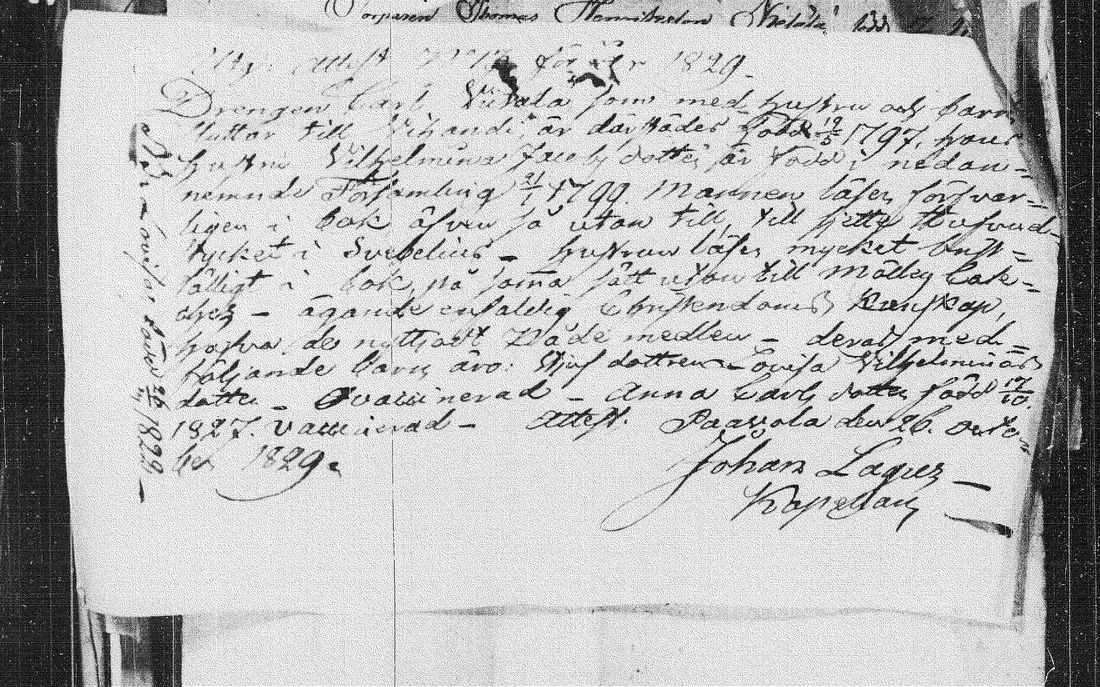 Torparen Thomas
attest N:o 17 för år 1829.
Drengen Carl Viitala som med hustru och barn
fluttar till Vihandi, är därstädes född 19/5 1797, hans
hustru Vilhelmina Jacobs dotter är född i nedan-
nemnde Församling 21/1 1799. Mannen läser försvar-
ligen i bok äfven så utan till, till sjette Hufvud-
stycket i Svebelius - hustrun läser mycket
i bok, på samma sätt utan till
- ägande enfaldig Christendoms Kunskap,
hafva de nyttjadt Nåde medlen - deras med-
följande barn äro: Styf dottren Lovisa Vilhelminæ
dotter - Ovaccinerad - Anna Carls dotter född 17/10
1827. vaccinerad - Attest. Paavola den 26. Octo-
ber 1829.
Johan Lagus
Kapellan
född 26/11 1823 -